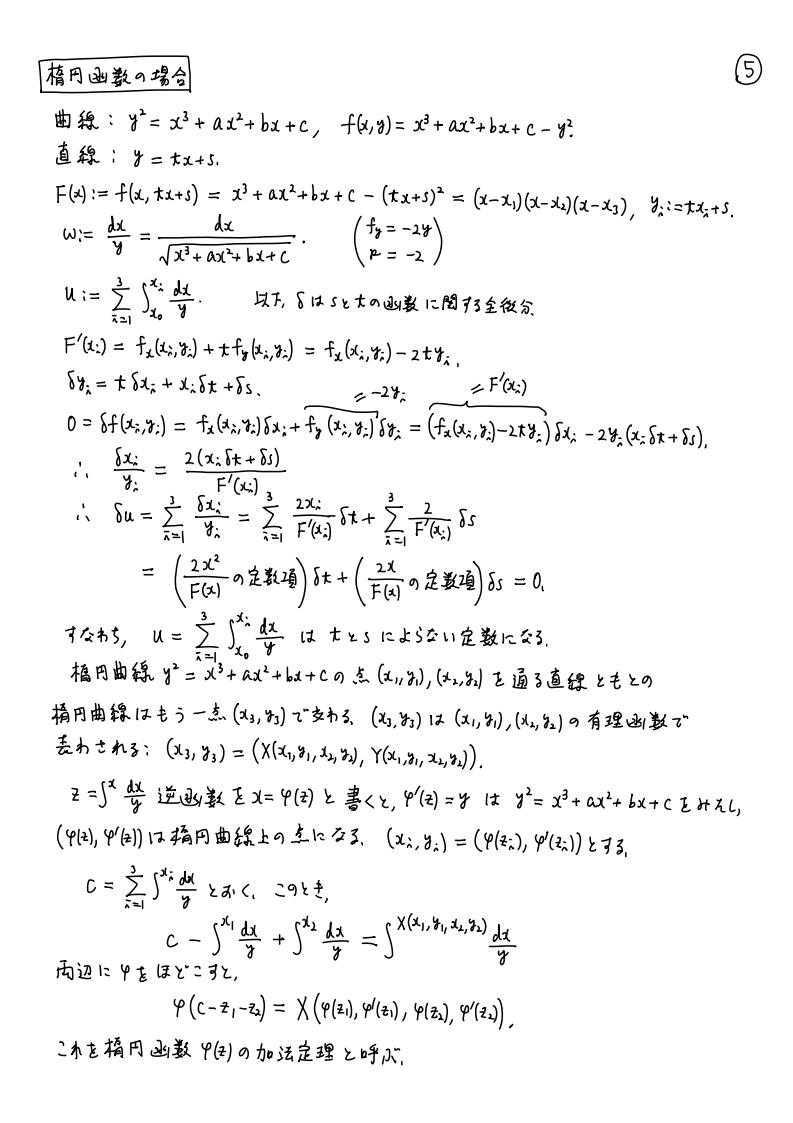 楕円函数の場合 ⑤
曲線： y² = x³ + ax² + bx + c, f(x,y) = x³ + ax² + bx + c − y².
直線： y = tx + s.
F(x) := f(x, tx+s) = x³ + ax² + bx + c − (tx+s)² = (x−x₁)(x−x₂)(x−x₃), yᵢ := txᵢ + s.
ω := dx/y = dx/√(x³ + ax² + bx + c). (f_y = −2y
R = −2)
u := Σ_{i=1}^{3} ∫_{x₀}^{xᵢ} dx/y. 以下, δはsとtの函数に関する全微分.
F'(xᵢ) = f_x(xᵢ,yᵢ) + t f_y(xᵢ,yᵢ) = f_x(xᵢ,yᵢ) − 2tyᵢ.
δyᵢ = t δxᵢ + xᵢ δt + δs. = −2yᵢ = F'(xᵢ)
0 = δf(xᵢ,yᵢ) = f_x(xᵢ,yᵢ)δxᵢ + f_y(xᵢ,yᵢ)δyᵢ = (f_x(xᵢ,yᵢ) − 2tyᵢ)δxᵢ − 2yᵢ(xᵢδt + δs).
∴ δxᵢ/yᵢ = 2(xᵢδt + δs)/F'(xᵢ)
∴ δu = Σ_{i=1}^{3} δxᵢ/yᵢ = Σ_{i=1}^{3} 2xᵢ/F'(xᵢ) δt + Σ_{i=1}^{3} 2/F'(xᵢ) δs
= (2x²/F(x) の定数項) δt + (2x/F(x) の定数項) δs = 0.
すなわち, u = Σ_{i=1}^{3} ∫_{x₀}^{xᵢ} dx/y は tとsによらない定数になる.
楕円曲線 y² = x³ + ax² + bx + c の点 (x₁,y₁), (x₂,y₂) を通る直線ともとの
楕円曲線はもう一点 (x₃,y₃) で交わる. (x₃,y₃) は (x₁,y₁), (x₂,y₂) の有理函数で
表わされる: (x₃,y₃) = (X(x₁,y₁,x₂,y₂), Y(x₁,y₁,x₂,y₂)).
z = ∫^x dx/y 逆函数を x = φ(z) と書くと, φ'(z) = y は y² = x³ + ax² + bx + c をみたし,
(φ(z), φ'(z)) は楕円曲線上の点になる. (xᵢ,yᵢ) = (φ(zᵢ), φ'(zᵢ)) とする.
C = Σ_{i=1}^{3} ∫^{xᵢ} dx/y とおく. このとき,
C − ∫^{x₁} dx/y + ∫^{x₂} dx/y = ∫^{X(x₁,y₁,x₂,y₂)} dx/y
両辺に φ をほどこすと,
φ(C−z₁−z₂) = X(φ(z₁), φ'(z₁), φ(z₂), φ'(z₂)).
これを楕円函数 φ(z) の加法定理と呼ぶ.